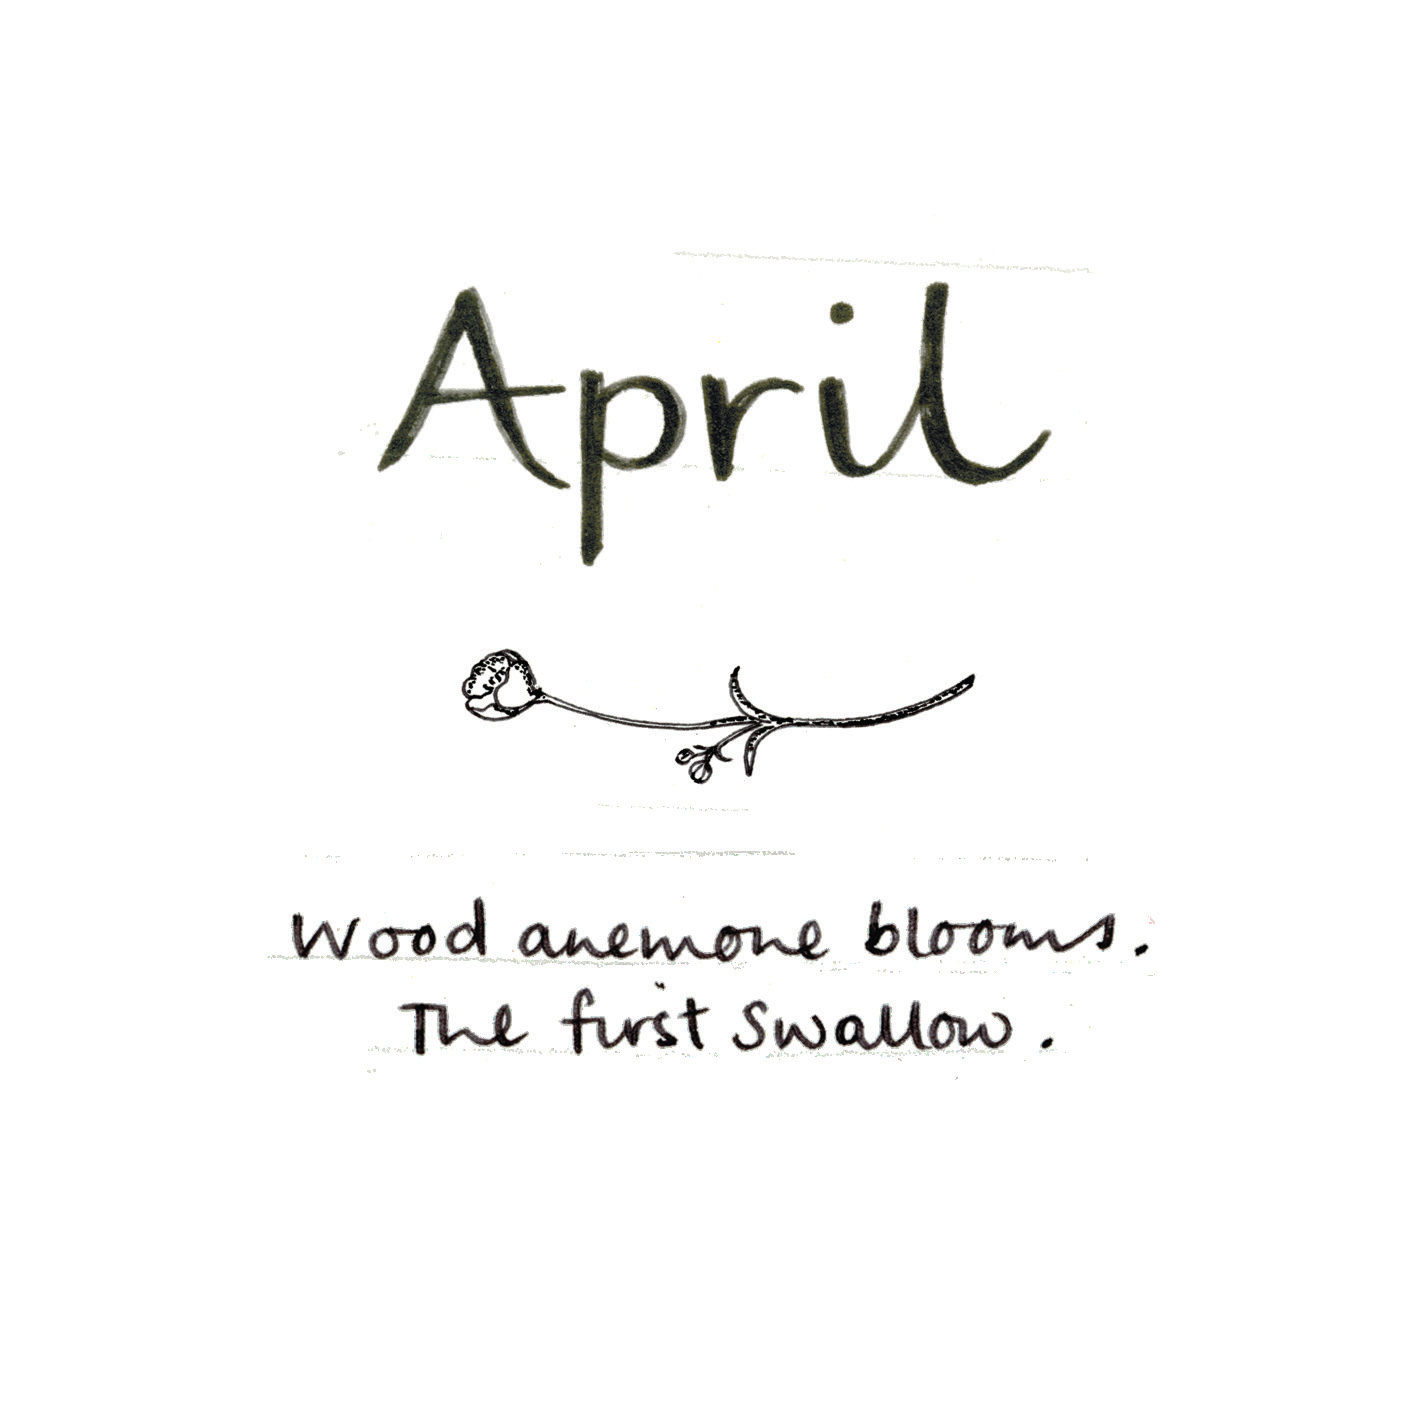 April
Wood anemone blooms.
The first Swallow.